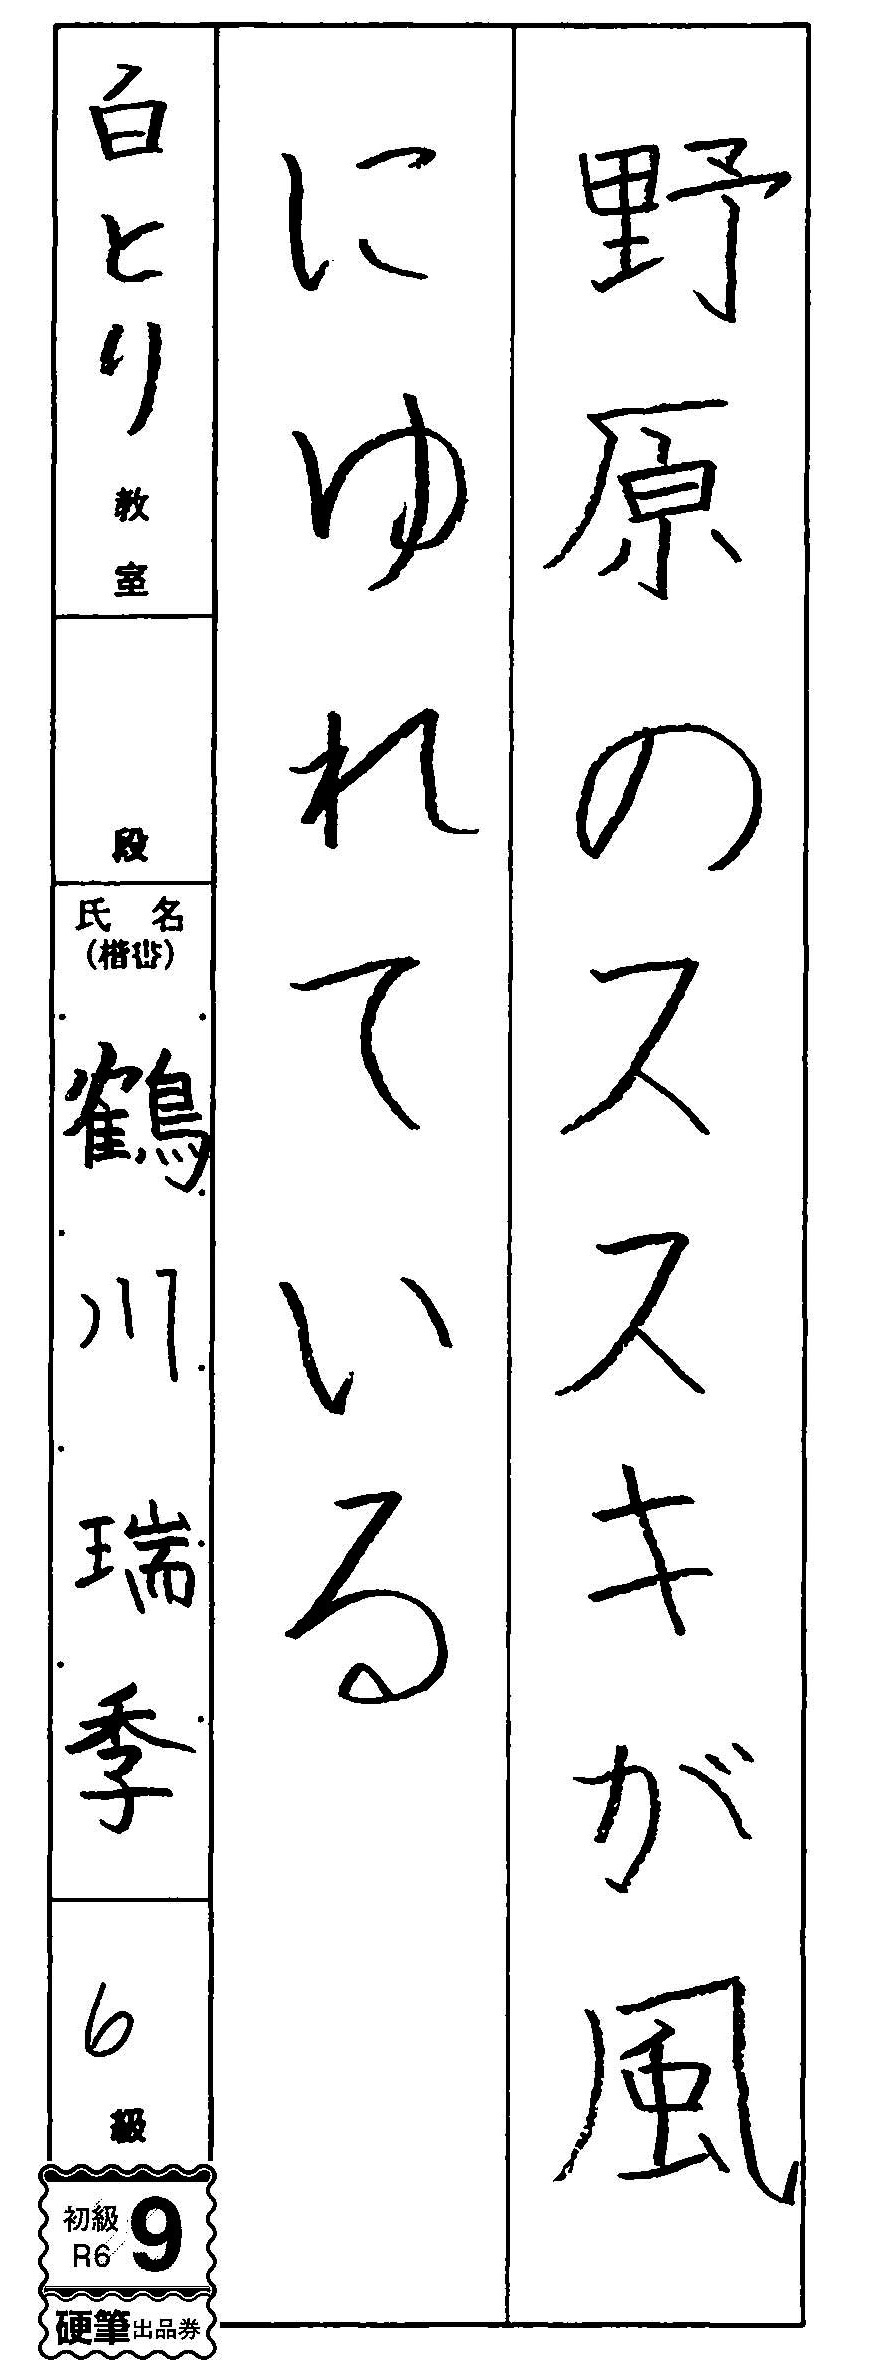 野原のススキが風
にゆれている
白とり教室
段
氏名
(楷書)
鶴川瑞季
6級
初級
R6
9
硬筆出品券